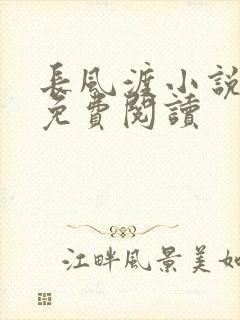 長風渡小說
免費閱讀
江畔風景美如